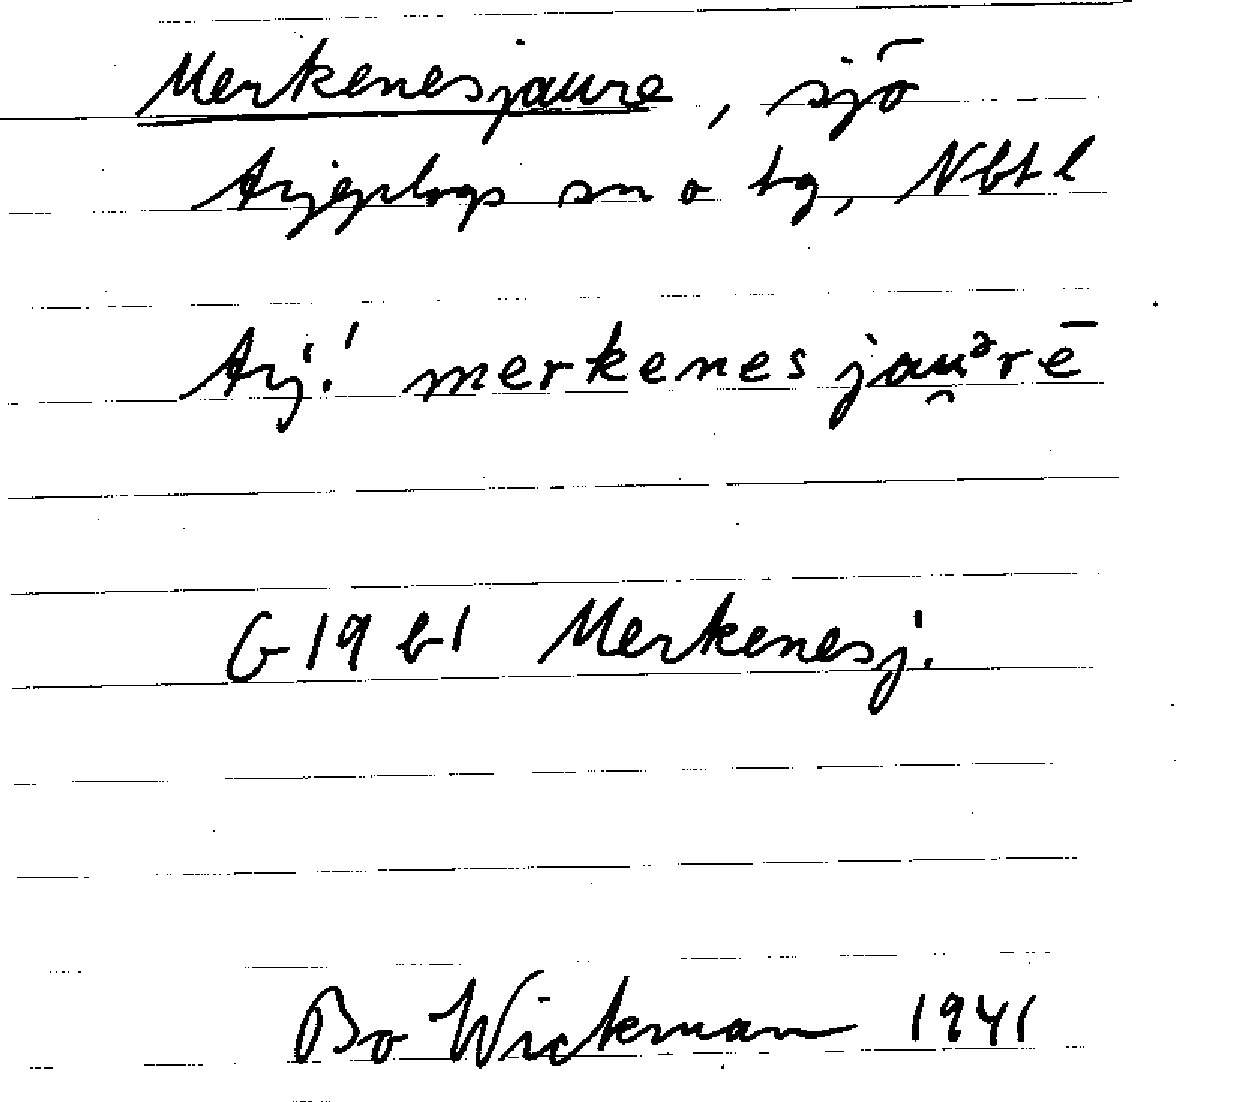 Merkenesjaure, sjö
Arjeplogs sn o tg, Nbtl
Arj! merkenes jau̯ᵊrē
G 19 b1 Merkenesj.
Bo Wickman 1941